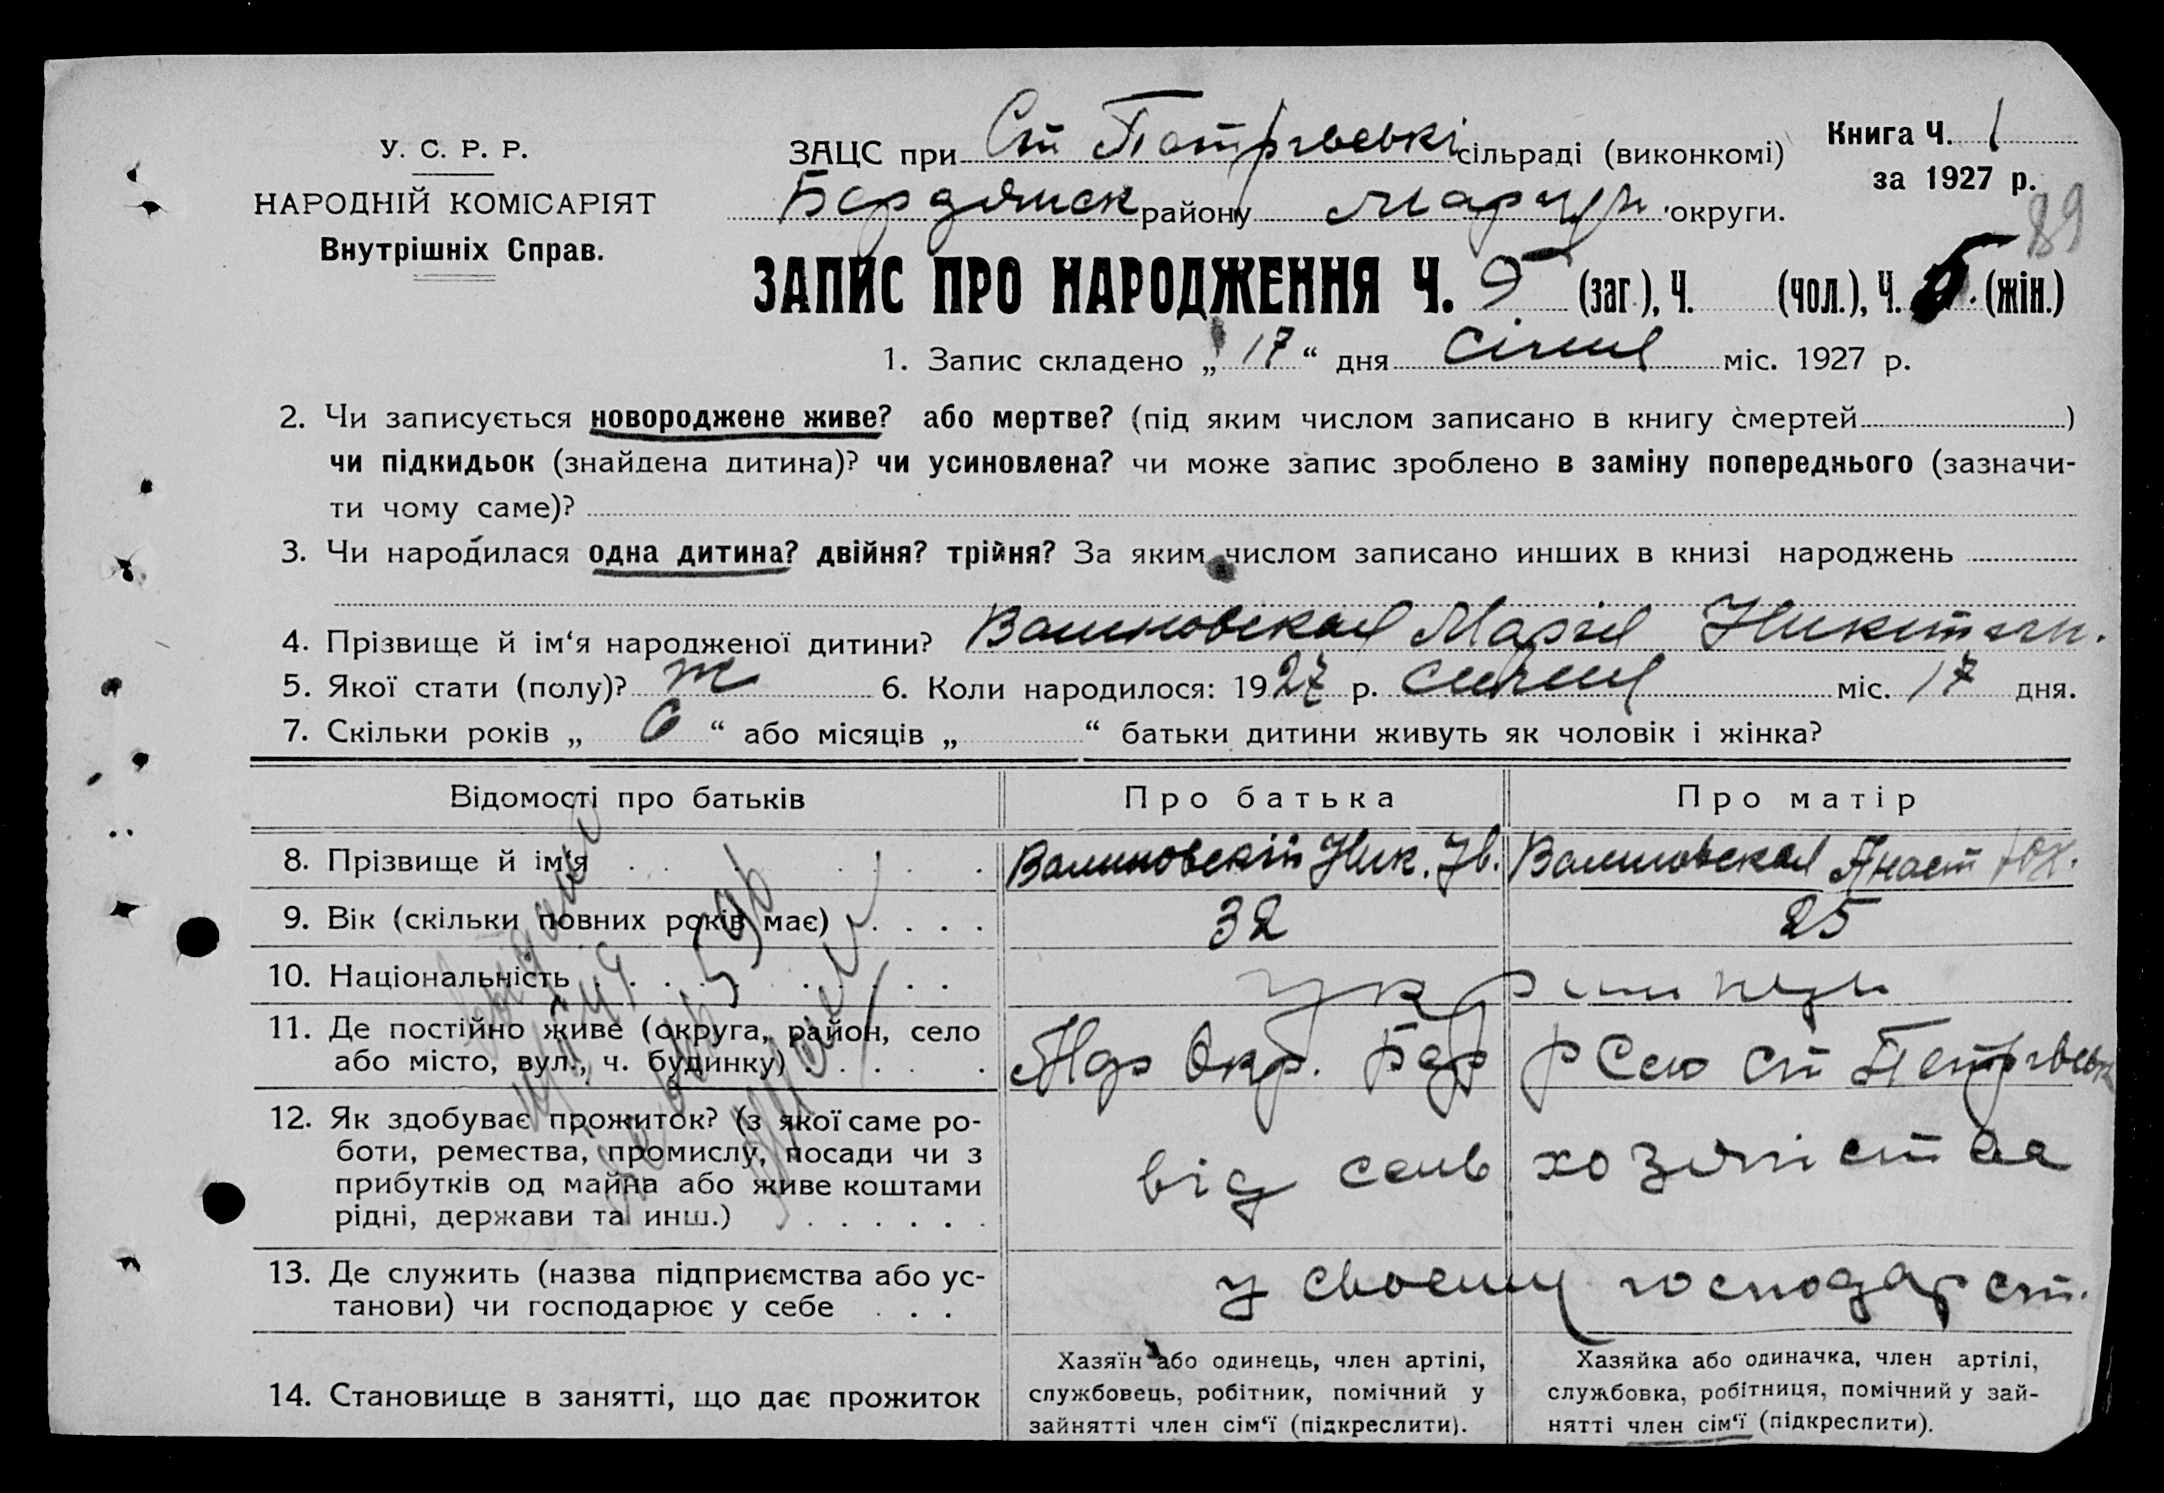 У. С. Р. Р.
НАРОДНІЙ КОМІСАРІЯТ
Внутрішніх Справ.
ЗАЦС при Ст Петрівські сільраді (виконкомі)
Бердянск району Маріуп. округи.
Книга Ч. 1
за 1927 р.
89
ЗАПИС ПРО НАРОДЖЕННЯ Ч. 9 (заг.), Ч. (чол.), Ч. 5 (жін.)
1. Запис складено „ 17 “ дня Січня міс. 1927 р.
2. Чи записується новороджене живе? або мертве? (під яким числом записано в книгу смертей )
чи підкидьок (знайдена дитина)? чи усиновлена? чи може запис зроблено в заміну попереднього (зазначи-
ти чому саме)?
3. Чи народилася одна дитина? двійня? трійня? За яким числом записано инших в книзі народжень
4. Прізвище й ім‘я народженої дитини? Марія
5. Якої стати (полу)? ж 6. Коли народилося: 1927 р. січня міс. 17 дня.
7. Скільки років „ 6 “ або місяців „ “ батьки дитини живуть як чоловік і жінка?
Відомості про батьків Про батька Про матір
8. Прізвище й ім‘я Ник. Ів. Анаст
9. Вік (скільки повних років має) 32 25
10. Національність українци
11. Де постійно живе (округа, район, село
або місто, вул., ч. будинку) Мар Окр. Бер р Село Ст Петрівськ
12. Як здобуває прожиток? (з якої саме ро-
боти, ремества, промислу, посади чи з
прибутків од майна або живе коштами
рідні, держави та инш.)
від сель хозяіства
13. Де служить (назва підприємства або ус-
танови) чи господарює у себе
у своєму господарст.
14. Становище в занятті, що дає прожиток
Хазяїн або одинець, член артілі,
службовець, робітник, помічний у
зайнятті член сім‘ї (підкреслити).
Хазяйка або одиначка, член артілі,
службовка, робітниця, помічний у зай-
нятті член сім‘ї (підкреслити).